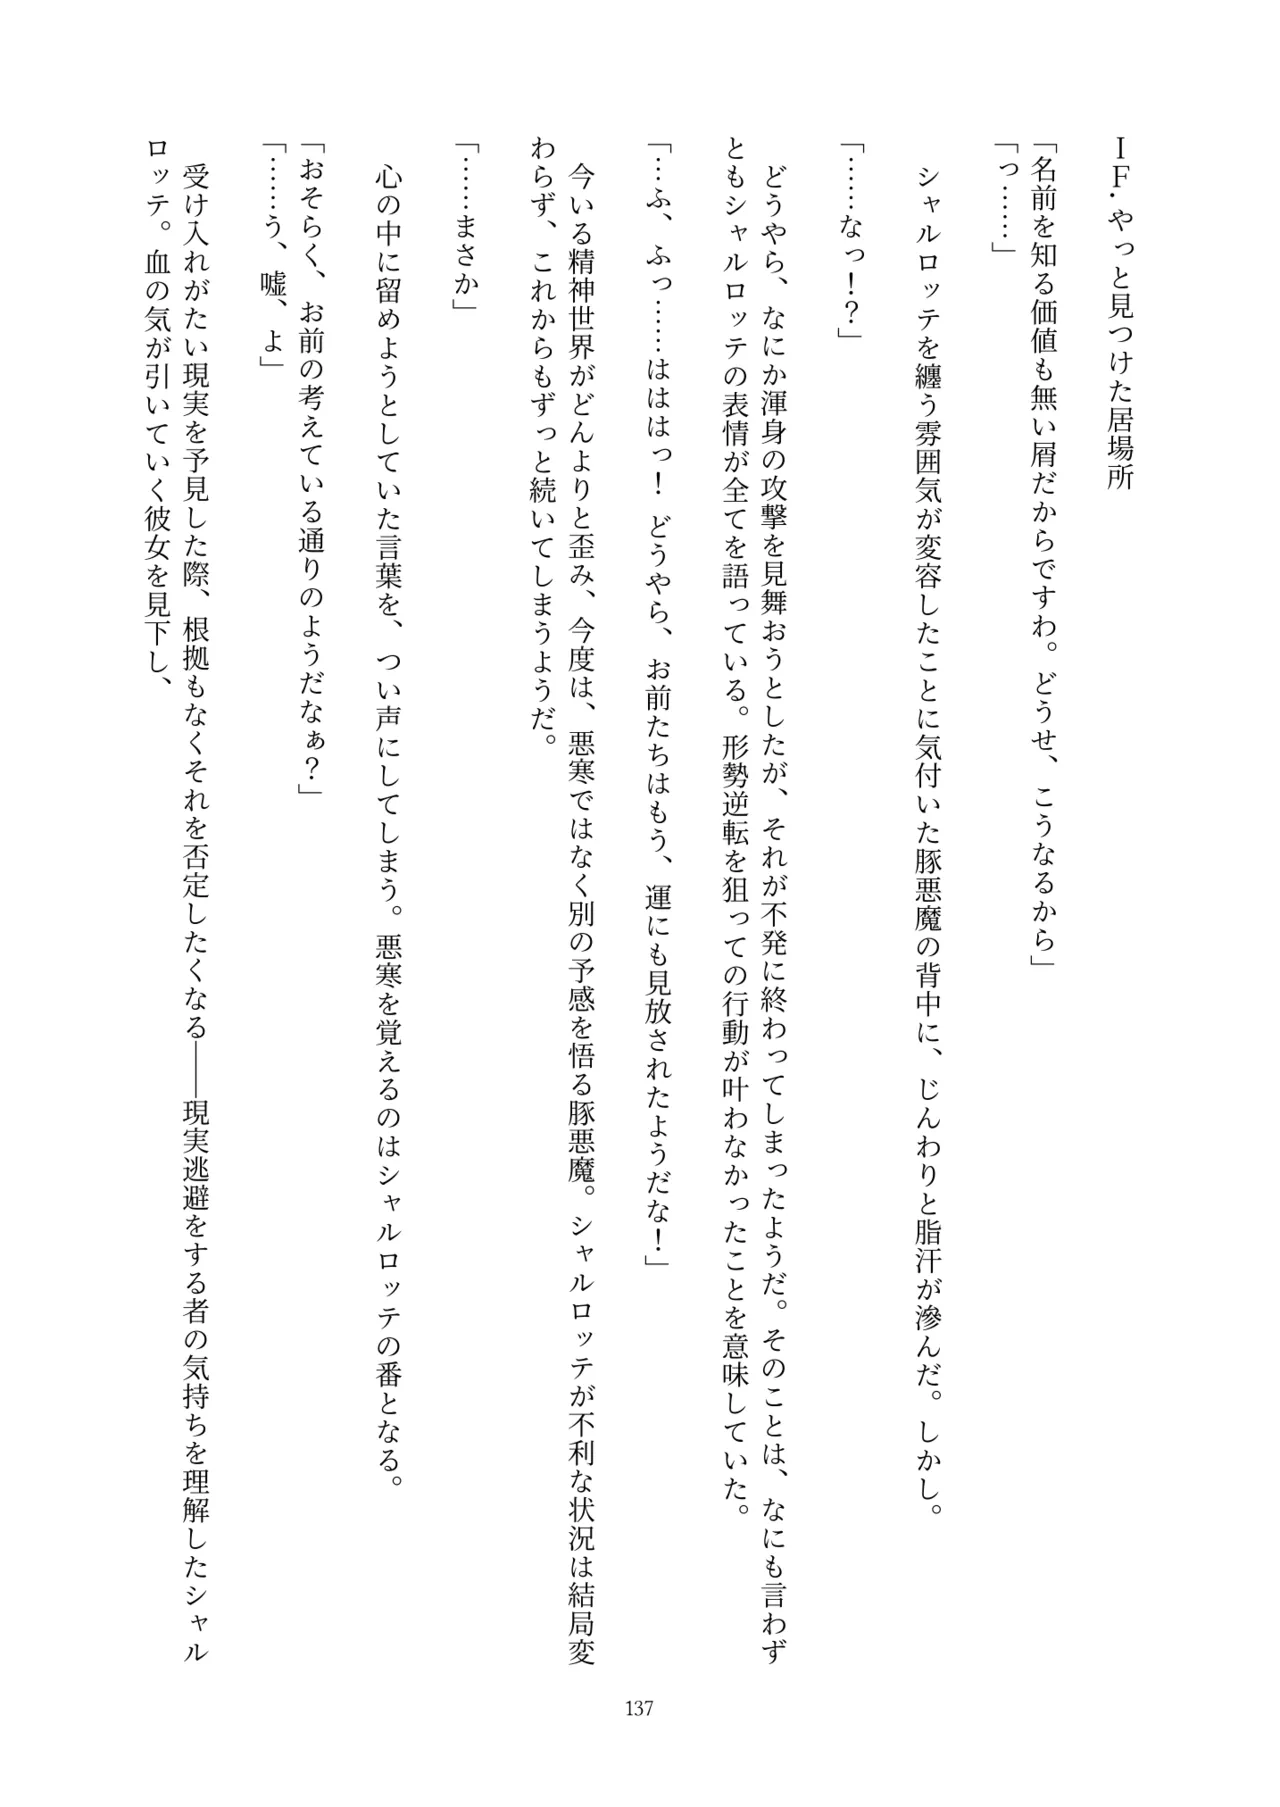 ＩＦ．やっと見つけた居場所
「名前を知る価値も無い屑だからですわ。どうせ、こうなるから」
「っ……」
シャルロッテを纏う雰囲気が変容したことに気付いた豚悪魔の背中に、じんわりと脂汗が滲んだ。しかし。
「……なっ！？」
どうやら、なにか渾身の攻撃を見舞おうとしたが、それが不発に終わってしまったようだ。そのことは、なにも言わず
ともシャルロッテの表情が全てを語っている。形勢逆転を狙っての行動が叶わなかったことを意味していた。
「…ふ、ふっ……はははっ！　どうやら、お前たちはもう、運にも見放されたようだな！」
今いる精神世界がどんよりと歪み、今度は、悪寒ではなく別の予感を悟る豚悪魔。シャルロッテが不利な状況は結局変
わらず、これからもずっと続いてしまうようだ。
「……まさか」
心の中に留めようとしていた言葉を、つい声にしてしまう。悪寒を覚えるのはシャルロッテの番となる。
「おそらく、お前の考えている通りのようだなぁ？」
「……う、嘘、よ」
受け入れがたい現実を予見した際、根拠もなくそれを否定したくなる――現実逃避をする者の気持ちを理解したシャル
ロッテ。血の気が引いていく彼女を見下し、
137